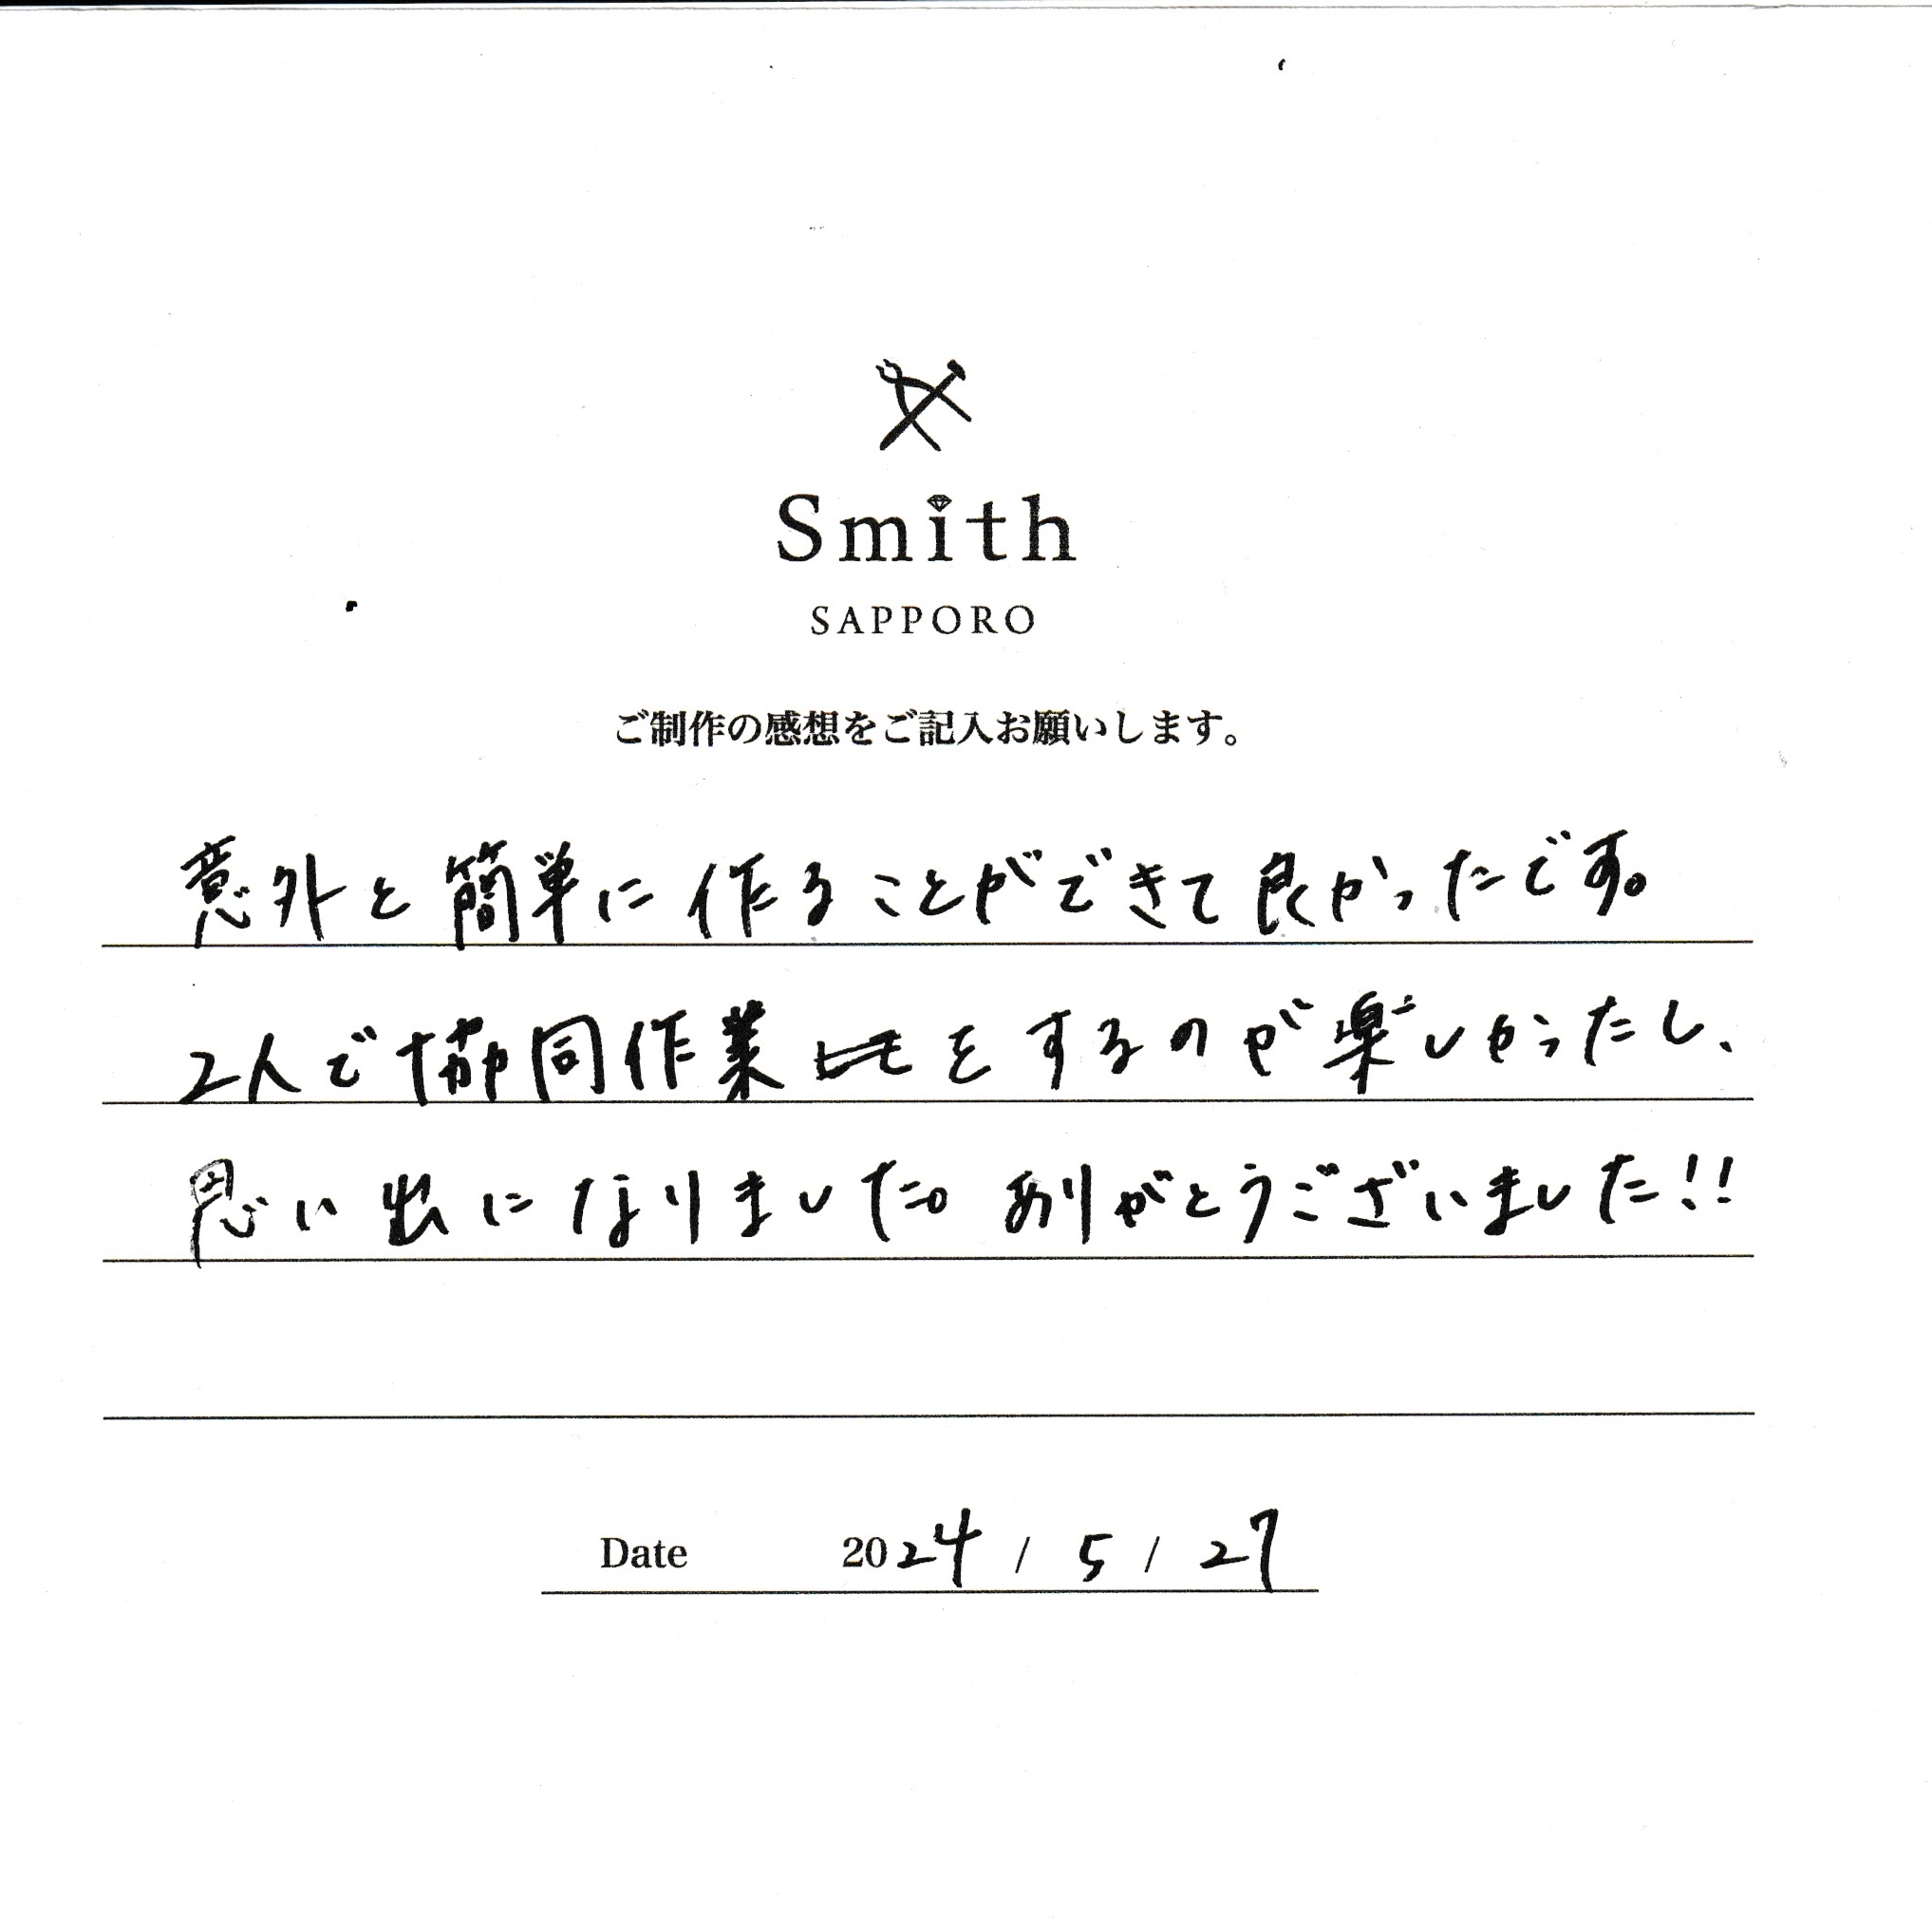 Smith
SAPPORO
ご制作の感想をご記入お願いします。
意外と簡単に作ることができて良かったです。
2人で協同作業をするのが楽しかったし、
思い出になりました。ありがとうございました!!
Date 2024 / 5 / 27